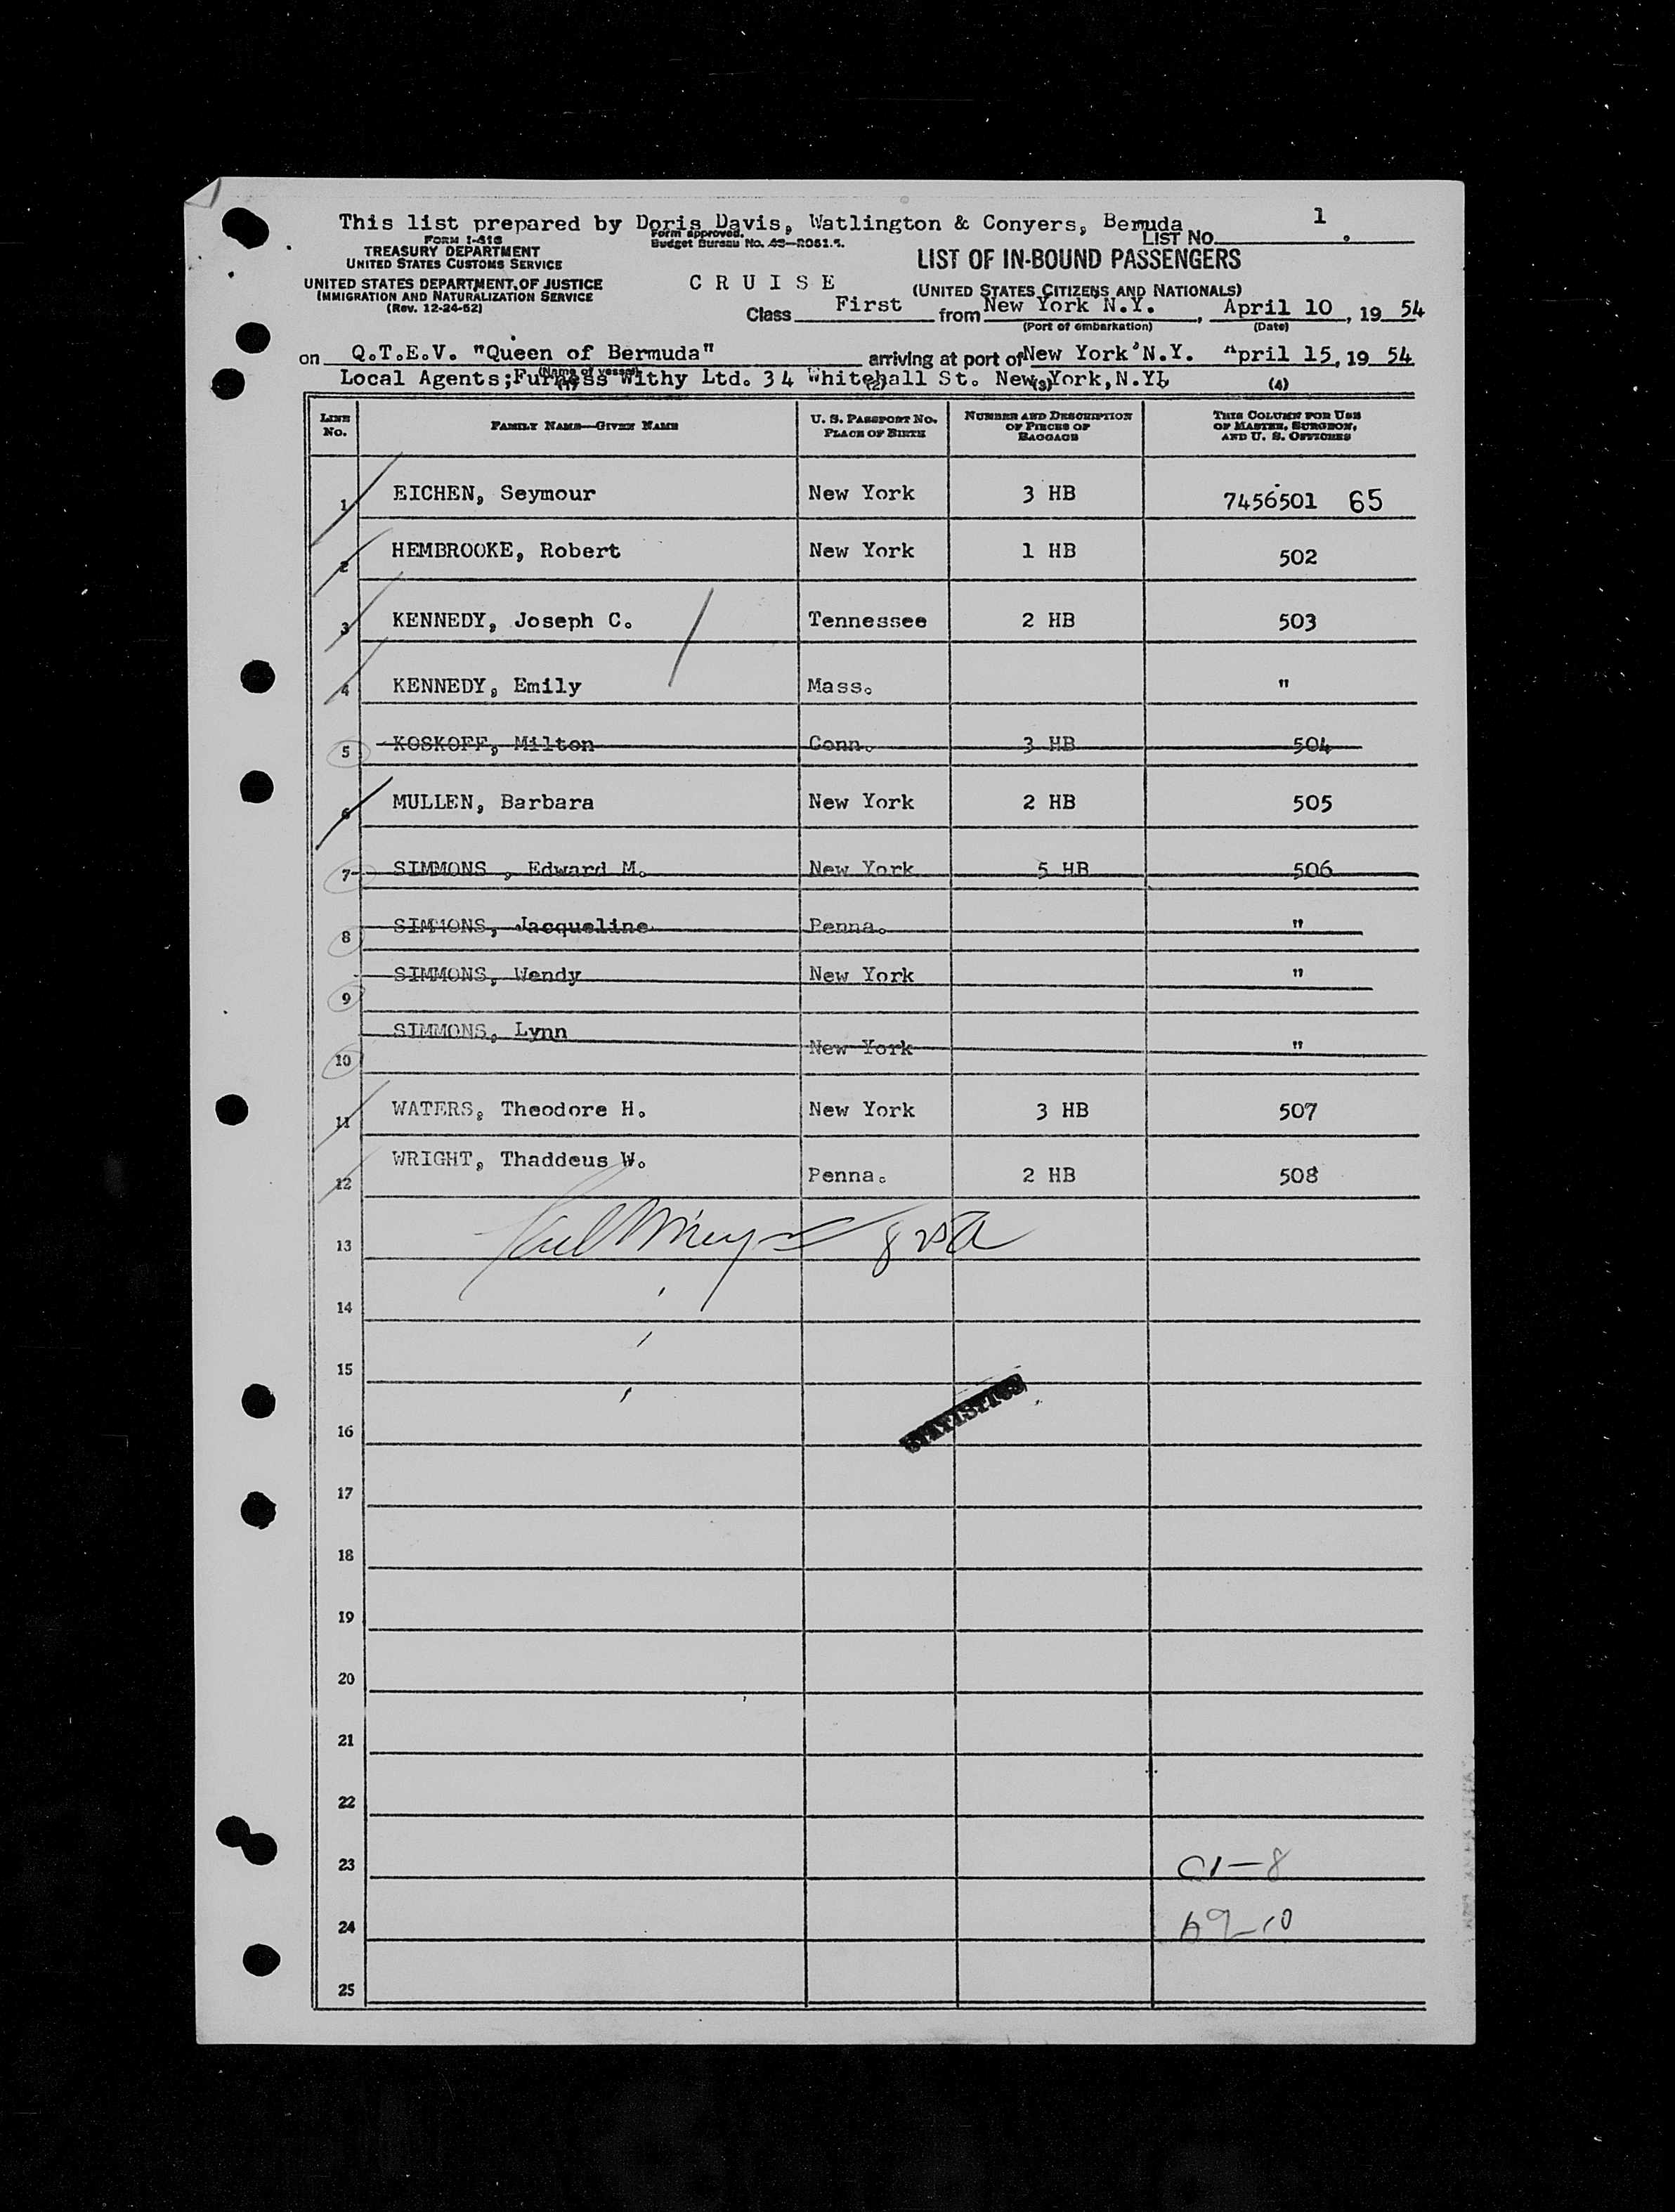 This list prepared by Doris Davis, Watlington & Conyers, Bemuda
1
FORM I-418
TREASURY DEPARTMENT
UNITED STATES CUSTOMS SERVICE
UNITED STATES DEPARTMENT OF JUSTICE
IMMIGRATION AND NATURALIZATION SERVICE
(Rev. 12-24-52)
Form approved.
Budget Bureau No. 43—R051.5.
LIST NO.
LIST OF IN-BOUND PASSENGERS
(UNITED STATES CITIZENS AND NATIONALS)
C R U I S E
Class First from New York N.Y., April 10, 19 54
(Port of embarkation) (Date)
on Q.T.E.V. "Queen of Bermuda" arriving at port of New York N.Y. April 15, 19 54
(Name of vessel)
Local Agents;Furness Withy Ltd. 34 Whitehall St. New York, N.Y.
(1) (2) (3) (4)
LINE No. FAMILY NAME—GIVEN NAME U. S. PASSPORT NO. PLACE OF BIRTH NUMBER AND DESCRIPTION OF PIECES OF BAGGAGE THIS COLUMN FOR USE OF MASTER, SURGEON, AND U. S. OFFICERS
1 EICHEN, Seymour New York 3 HB 7456501 65
2 HEMBROOKE, Robert New York 1 HB 502
3 KENNEDY, Joseph C. Tennessee 2 HB 503
4 KENNEDY, Emily Mass. "
5 KOSKOFF, Milton Conn. 3 HB 504
6 MULLEN, Barbara New York 2 HB 505
7 SIMMONS , Edward M. New York 5 HB 506
8 SIMMONS, Jacqueline Penna. "
9 SIMMONS, Wendy New York "
10 SIMMONS, Lynn New York "
11 WATERS, Theodore H. New York 3 HB 507
12 WRIGHT, Thaddeus W. Penna. 2 HB 508
13
14
15
STATISTICS
16
17
18
19
20
21
22
23
24
25